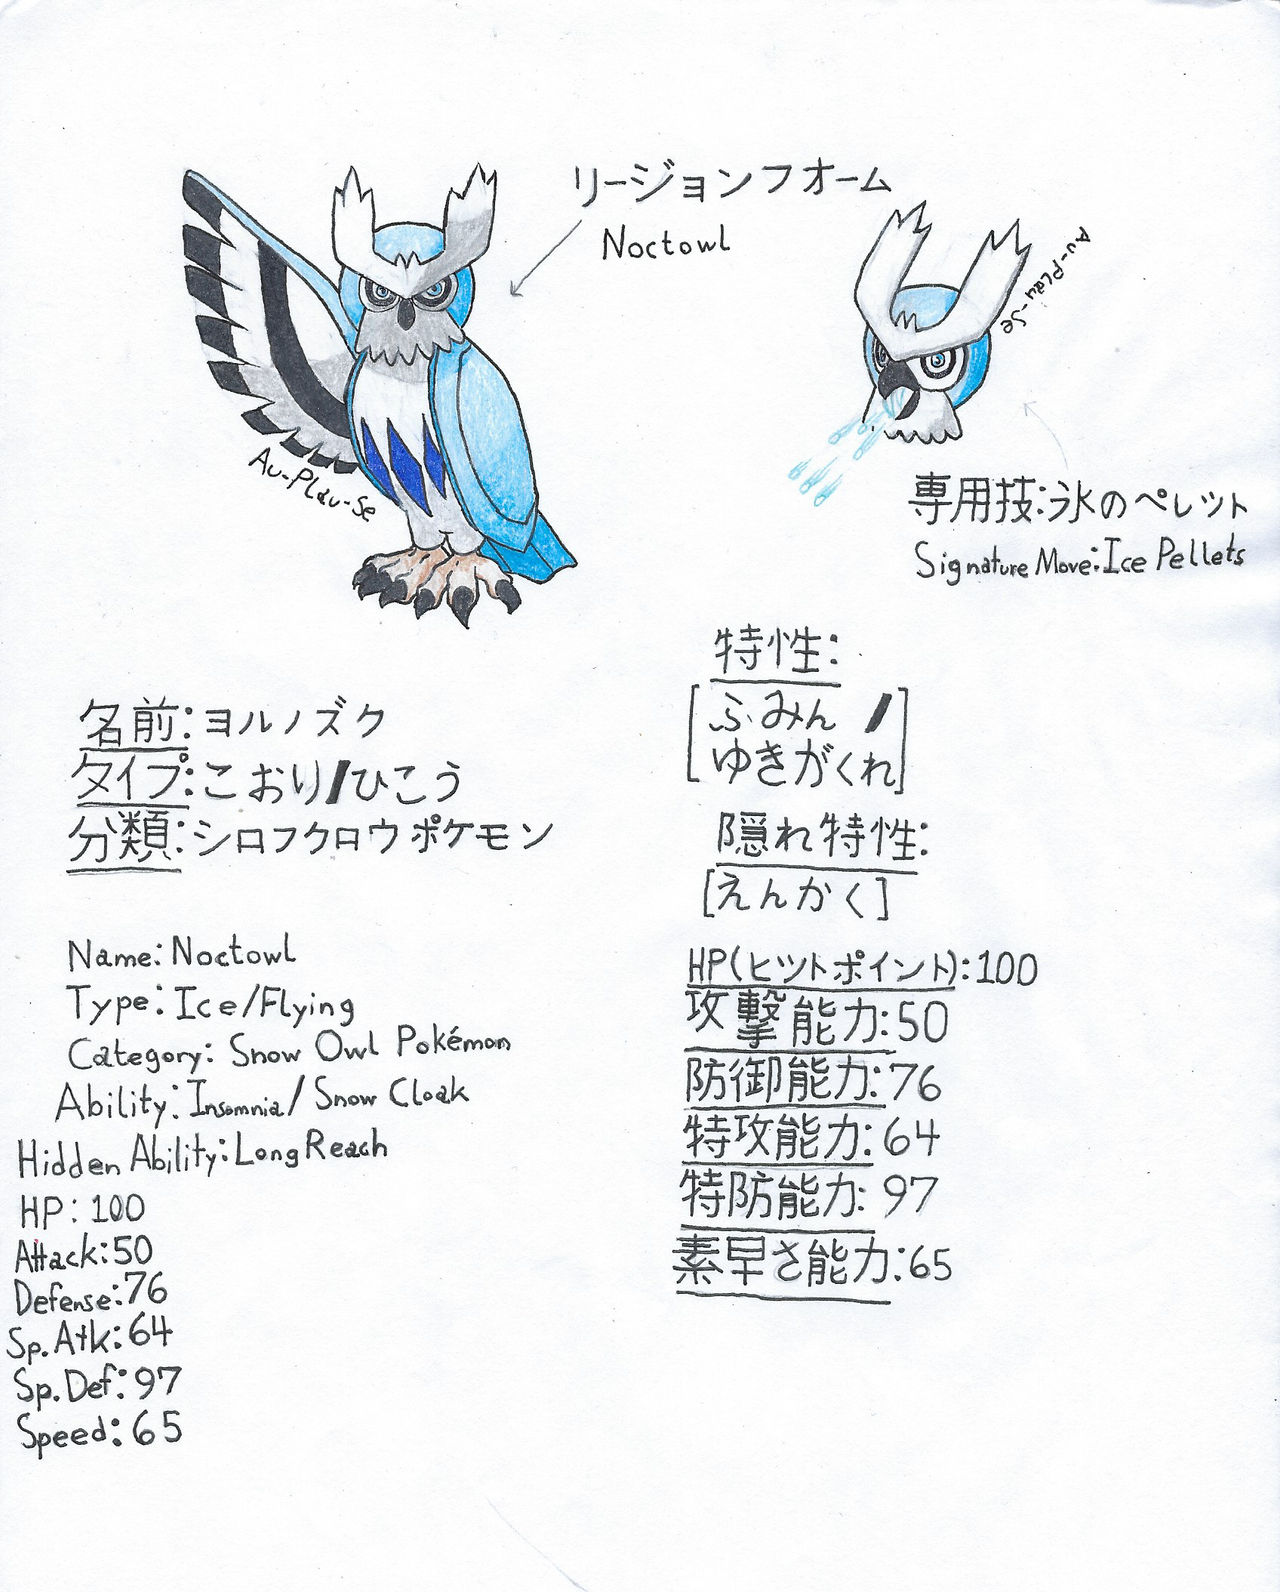 リージョンフォーム
Noctowl
Au-Plau-Se
Au-Plau-Se
専用技:氷のペレット
Signature Move: Ice Pellets
名前:ヨルノズク
タイプ:こおり/ひこう
分類:シロフクロウポケモン
Name: Noctowl
Type: Ice/Flying
Category: Snow Owl Pokémon
Ability: Insomnia/Snow Cloak
Hidden Ability: Long Reach
HP: 100
Attack: 50
Defense: 76
Sp. Atk: 64
Sp. Def: 97
Speed: 65
特性:
[ふみん/
ゆきがくれ]
隠れ特性:
[えんかく]
HP(ヒットポイント):100
攻撃能力:50
防御能力:76
特攻能力:64
特防能力:97
素早さ能力:65